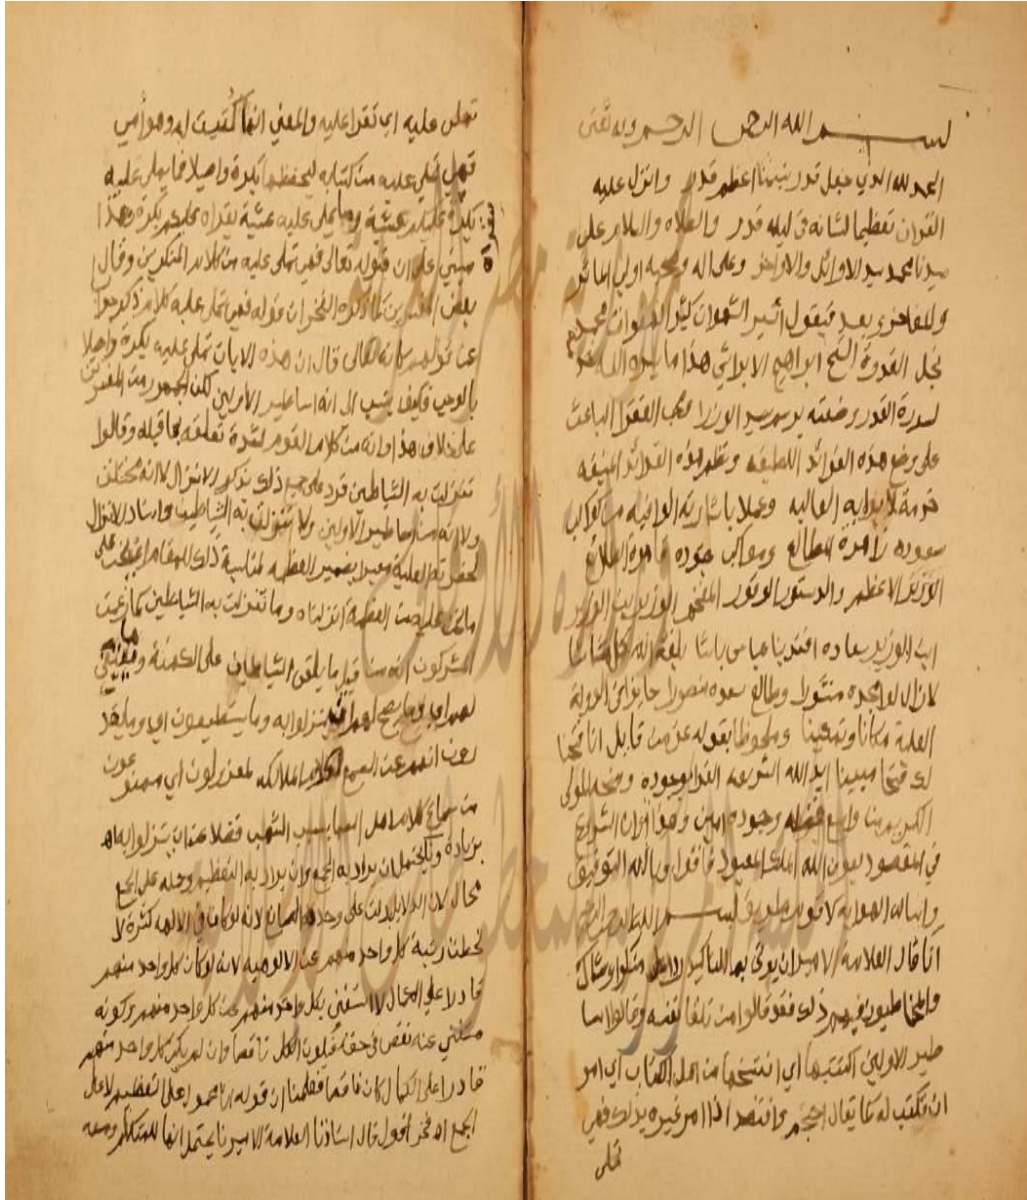 بسم الله الرحمن الرحيم وبه ثقتي
الحمد لله الذي جعل قدر نبينا اعظم قدر وانزل عليه
القران تعظيما لشانه في ليلة قدر والصلاه والسلام على
سيدنا محمد سيد الاوائل والاواخر وعلى اله وصحبه اولي الماثر
والمفاخر وبعد فيقول اسير الشهوات كثير الهفوات محمد
نجل القدوة الشيخ ابراهيم الابراشي هذا ما يسره الله
لسورة القدر وضعته برسم سيد الوزرا محب الفقرا الباعث
على وضع هذه الفوائد اللطيفه ونظم هذه الفرائد المنيفه
خدمة لابوابه العاليه وعملا باشارته الوافيه من كواكب
سعوده زاهرة المطالع ومواكب جوده
الاعظم والدستور الوقور المفخم الوزير بن الوزير
ابن الوزير سعاده افندينا عباس باشا بلغه الله كل ما شا
لا زال لوا مجده منشورا وطالع سعوده منصورا حايزا في الدولة
العلية مكانا وتمكينا وملحوظا بقوله عز من قايل انا فتحنا
لك فتحا مبينا ايد الله الشريعه الغرا بوجوده ومنحه المولى
الكريم من واسع فضله وجوده امين وهذا اوان الشروع
في المقصود بعون الله الملك المعبود فاقول وبالله التوفيق
واساله الهدايه لاقوم طريق بسم الله الرحمن الرحيم
انا قال العلامة الامير ان يوتى بها للتاكيد ردا على منكر او شاك
والمخاطبون فيهم ذلك فقد قالوا من تلقا نفسه وقالوا اسا
طير الاولين اكتتبها اي انتسخها من اهل الكتاب اي امر
ان تكتب له كما يقال احتجم وافتصد اذا امر غيره بذلك فهي
تملى
تملى عليه اي تقرا عليه والمعنى انها كتبت له وهو امي
فهي تملى عليه من كتابه ليحفظها بكرة واصيلا فما يملى عليه
بكرة عشية وما يملى عليه عشية يقراه عليكم بكرة وهذا
مبني على ان قوله تعالى فهي تملى عليه من كلام المنكرين وقال
بعض المفسرين كما ذكره الفخر ان قوله فهي تملى عليه كلام ذكر جوابا
عن قولهم كانه تعالى قال ان هذه الايات تملى عليه بكرة واصيلا
بالوحي فكيف ينسب الى انه اساطير الاولين لكن الجمهور من المفسرين
على خلاف هذا وانه من كلام القوم لشدة تعلقه بما قبله وقالوا
تنزلت به الشياطين فرد على جميع ذلك بذكر الانزال لا انه مختلق
ولا انه من اساطير الاولين ولا تنزلت به الشياطين واسناد الانزال
لحضرته العلية معبرا بضمير العظمه لمناسبة ذلك للمقام اي نحن على
ما نحن عليه من العظمة انزلناه وما تنزلت به الشياطين كما زعمت
المشركون انه من قبيل ما يلقى الشياطين على الكهنة وما ينبغي
لهم اي وما يصح لهم ان يتنزلوا به وما يستطيعون اي وما يقد
رون انهم عن السمع لكلام الملائكه لمعزولون اي ممنوعون
من سماع كلام اهل السما بسبب الشهب فضلا عن ان يتنزلوا به اه
بزيادة ويحتمل ان يراد به الجمع وان يراد به التعظيم وحمله على الجمع
محال لان الدلايل دلت على وحدة الصانع لانه لو كان في الالهه كثرة لا
نحطت رتبة كل واحد منهم عن الالوهيه لانه لو كان كل واحد منهم
قادرا على الكمال لاستغنى بكل واحد منهم عن كل واحد منهم وكونه
مستغنى عنه نقص في حقه فيكون الكل ناقصا وان لم يكن كل واحد منهم
قادرا على الكمال كان ناقصا فعلمنا ان قوله انا محمول على التعظيم لا على
الجمع اه فخر اقول قال استاذنا العلامة الامير نا يحتمل انها للمتكلم ومعه